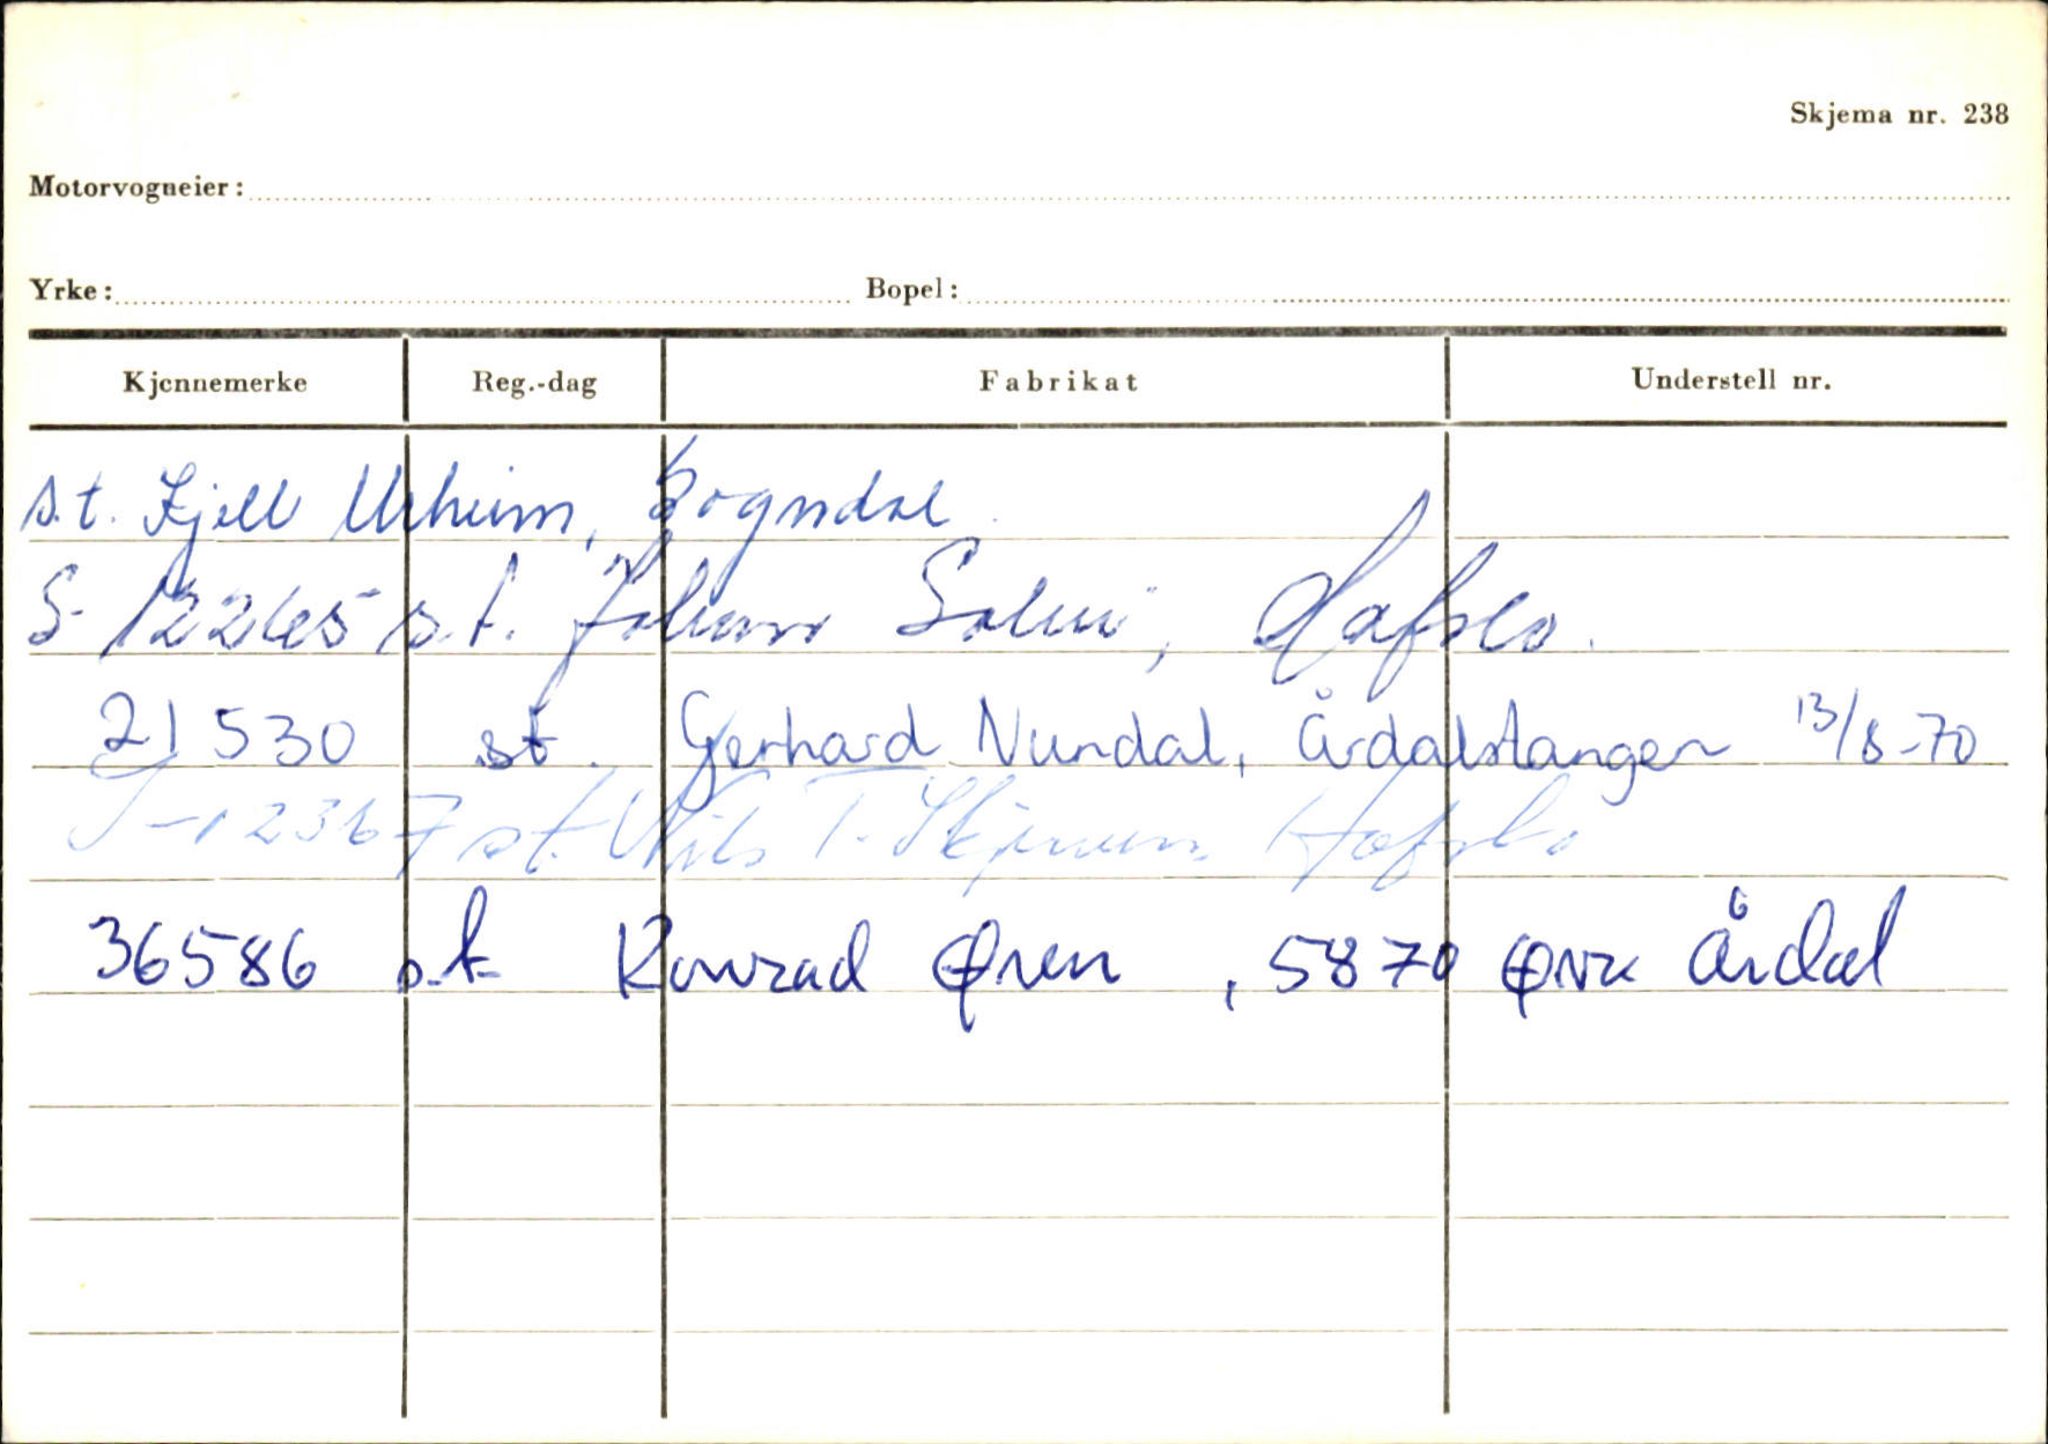 Skjema nr. 238
Motorvogneier:
Yrke: Bopel:
Kjennemerke Reg.-dag Fabrikat Understell nr.
s.t. Kjell Urheim, Sogndal.
S-12265 s.t. Johann Solvi, Hafslo.
21530 st. Gerhard Nundal, Årdalstangen 13/8-70
S-12367 st. Nils T. Hafslo
36586 s.t Konrad Øren, 5870 Øvre Årdal